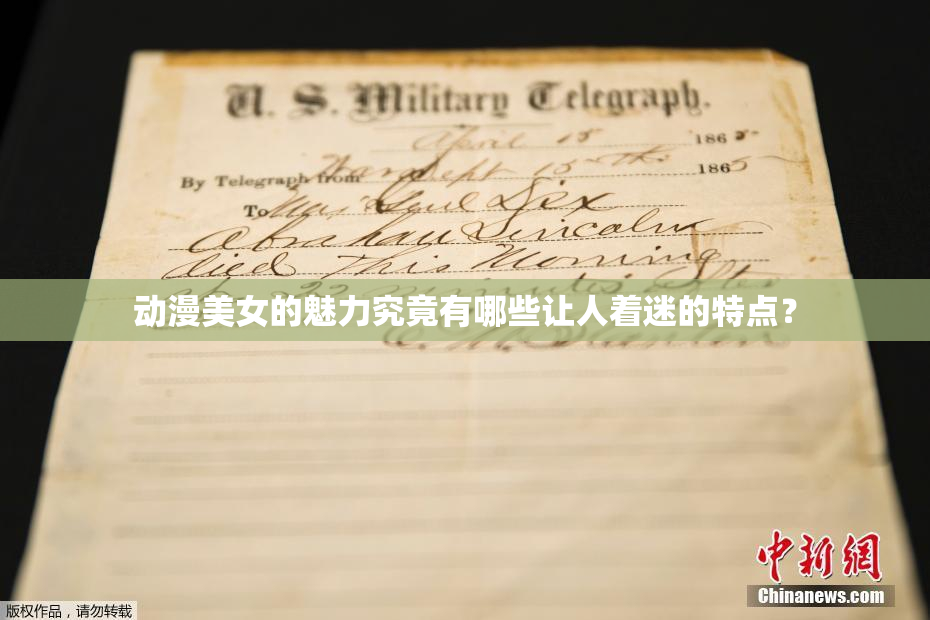 U. S. Military Telegraph.
April 15 1865
By Telegraph from War Dept 15th 1865
To Maj Genl Dix
Abraham Lincoln
died This Morning
at 22 minutes after
动漫美女的魅力究竟有哪些让人着迷的特点？
E. M. Stanton
中新网
Chinanews.com
版权作品，请勿转载